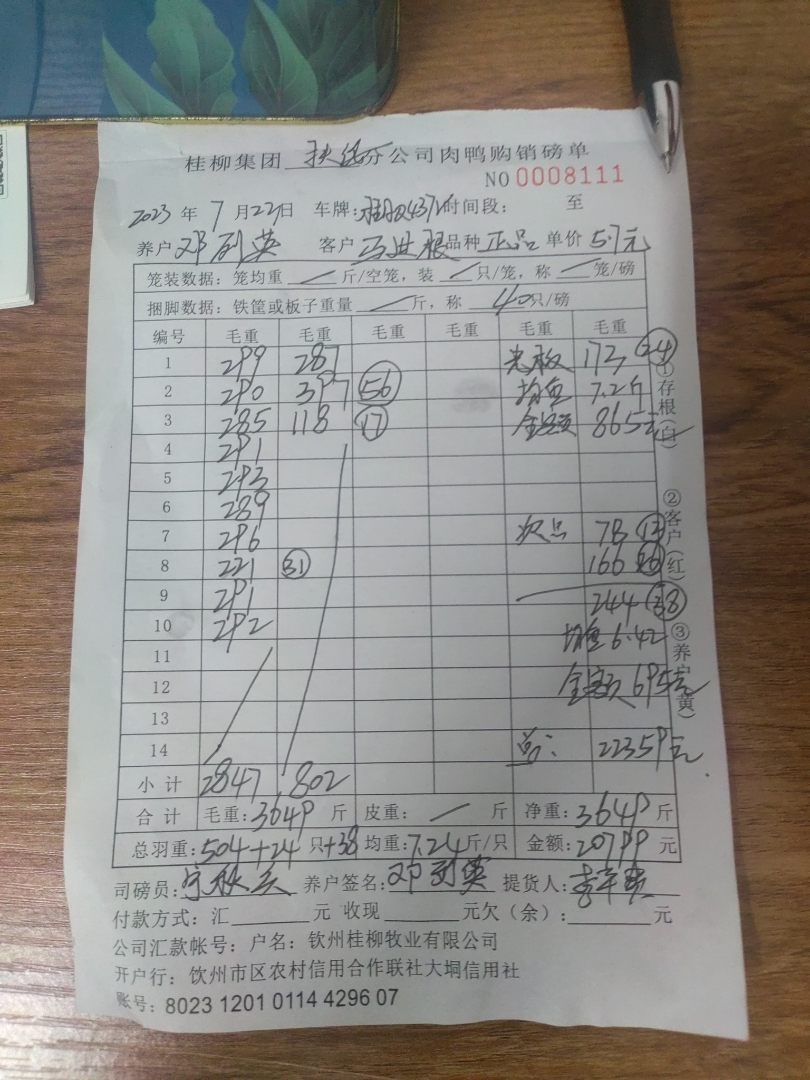 桂柳集团 分公司肉鸭购销磅单
NO 0008111
2023 年 7 月 22 日 车牌: 时间段: 至
养户 邓 英 客户 马进 品种 正品 单价 5.7元
笼装数据: 笼均重 / 斤/空笼, 装 / 只/笼, 称 / 笼/磅
捆脚数据: 铁筐或板子重量 / 斤, 称 40 只/磅
编号 毛重 毛重 毛重 毛重 毛重 毛重
1 299 287 光板 173 24
2 290 397 56 均重 7.2斤
3 285 118 17 金额 865元
4 291
5 293
6 289
7 296 次品 78 12
8 221 31 166 26
9 291 244 38
10 292 均重 6.42
11
12 金额 695元
13
14 总: 22359元
小计 2847 802
合计 毛重: 3649 斤 皮重: / 斤 净重: 3649 斤
总羽重: 504+24 只+38 均重: 7.24 斤/只 金额: 20799 元
司磅员: 宁秋 养户签名: 邓 英 提货人:
付款方式: 汇 元 收现 元欠(余): 元
公司汇款帐号: 户名: 钦州桂柳牧业有限公司
开户行: 钦州市区农村信用合作联社大垌信用社
账号: 8023 1201 0114 4296 07
①存根(白)
②客户(红)
③养户(黄)